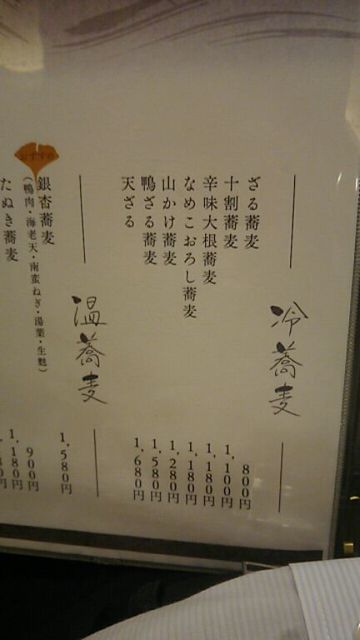 冷蕎麦
ざる蕎麦 800円
十割蕎麦 1,100円
辛味大根蕎麦 1,180円
なめこおろし蕎麦 1,180円
山かけ蕎麦 1,280円
鴨ざる蕎麦 1,580円
天ざる 1,680円
温蕎麦
おすすめ
銀杏蕎麦 1,580円
(鴨肉・海老天・南蛮ねぎ・湯葉・生麩)
たぬき蕎麦 900円
1,180円